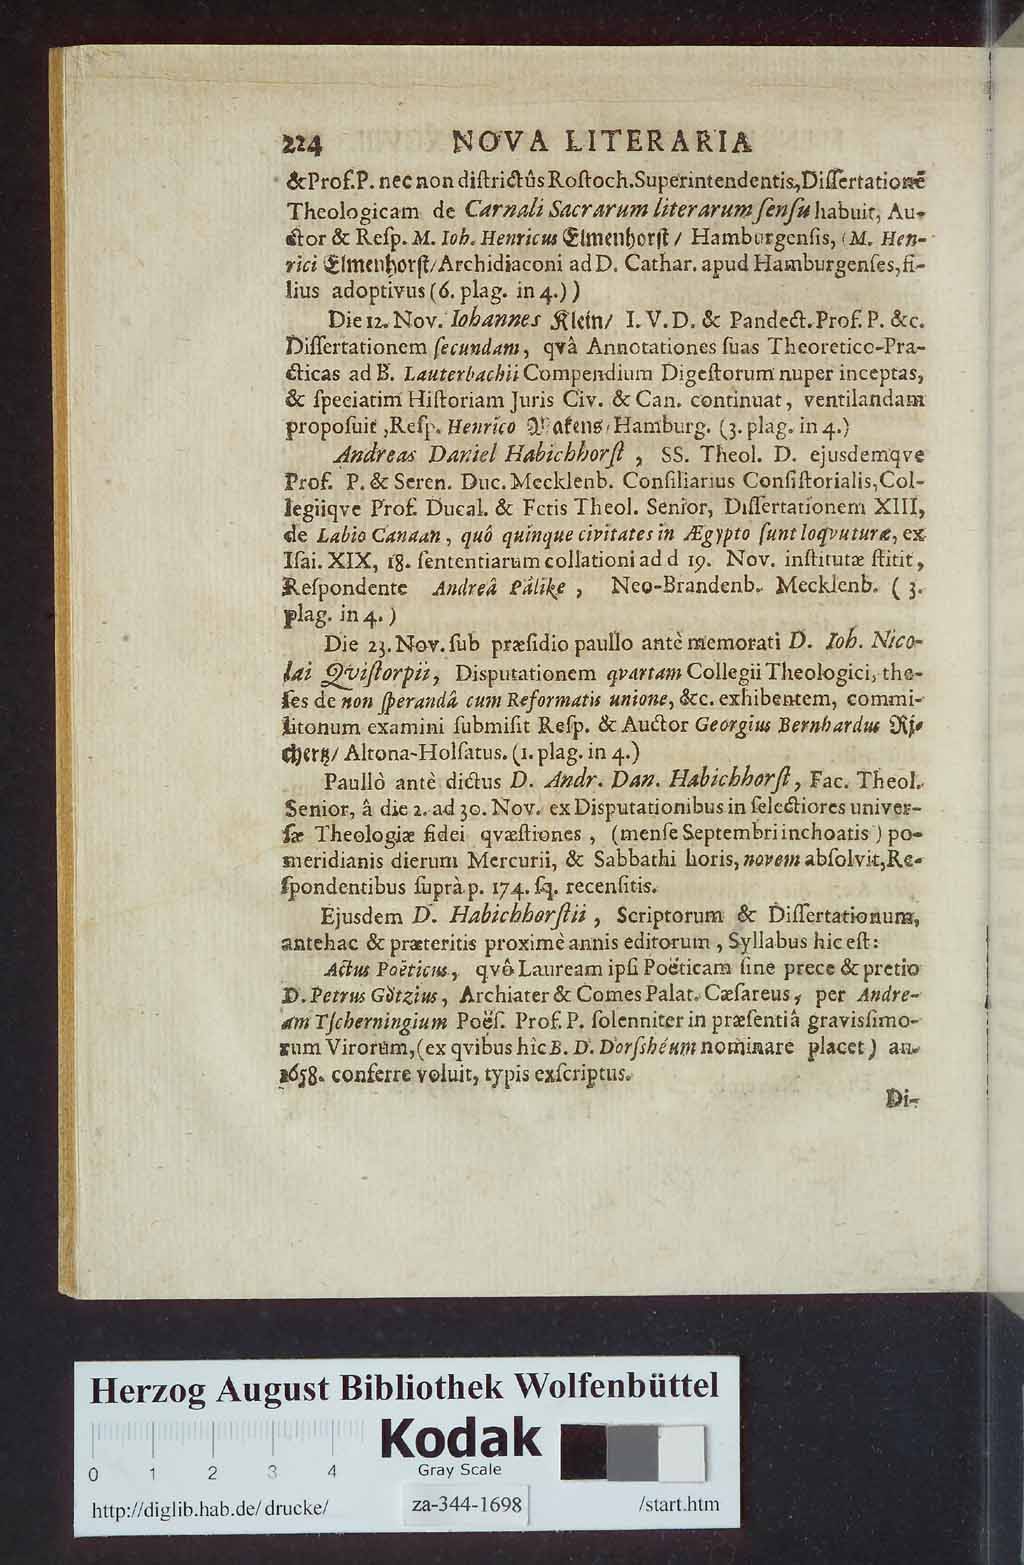 224 NOVA LITERARIA
& Prof. P. nec non diſtrictûs Roſtoch. Superintendentis, Diſſertationē
Theologicam de Carnali Sacrarum literarum ſenſu habuit, Au-
ctor & Reſp. M. Ioh. Henricus Elmenhorſt / Hamburgenſis, (M. Hen-
rici Elmenhorſt/ Archidiaconi ad D. Cathar. apud Hamburgenſes, fi-
lius adoptivus (6. plag. in 4.) )
Die 12. Nov. Iohannes Klein/ I. V. D. & Pandect. Prof. P. &c.
Diſſertationem ſecundam, qvâ Annotationes ſuas Theoretico-Pra-
cticas ad B. Lauterbachii Compendium Digeſtorum nuper inceptas,
& ſpeciatim Hiſtoriam Juris Civ. & Can. continuat, ventilandam
propoſuit, Reſp. Henrico Hamburg. (3. plag. in 4.)
Andreas Daniel Habichhorſt, SS. Theol. D. ejusdemqve
Prof. P. & Seren. Duc. Mecklenb. Conſiliarius Conſiſtorialis, Col-
legiiqve Prof. Ducal. & Fctis Theol. Senior, Diſſertationem XIII,
de Labio Canaan, quô quinque civitates in Ægypto ſunt loqvuturæ, ex
Iſai. XIX, 18. ſententiarum collationi ad d 19. Nov. inſtitutæ ſtitit,
Reſpondente Andreâ Pälike, Neo-Brandenb. Mecklenb. (3.
plag. in 4.)
Die 23. Nov. ſub præſidio paullo antè memorati D. Ioh. Nico-
lai Qviſtorpii, Disputationem qvartam Collegii Theologici, the-
ſes de non ſperandâ cum Reformatis unione, &c. exhibentem, commi-
litonum examini ſubmiſit Reſp. & Auctor Georgius Bernhardus Ri-
cherz/ Altona-Holſatus. (1. plag. in 4.)
Paullò antè dictus D. Andr. Dan. Habichhorſt, Fac. Theol.
Senior, â die 2. ad 30. Nov. ex Disputationibus in ſelectiores univer-
ſæ Theologiæ fidei qvæſtiones, (menſe Septembri inchoatis) po-
meridianis dierum Mercurii, & Sabbathi horis, novem abſolvit, Re-
ſpondentibus ſuprà p. 174. ſq. recenſitis.
Ejusdem D. Habichhorſtii, Scriptorum & Diſſertationum,
antehac & præteritis proximè annis editorum, Syllabus hic eſt:
Actus Poëticus, qvô Lauream ipſi Poëticam ſine prece & pretio
D. Petrus Götzius, Archiater & Comes Palat. Cæſareus, per Andre-
am Tſcherningium Poëſ. Prof. P. ſolenniter in præſentiâ graviſſimo-
rum Virorum, (ex qvibus hîc B. D. Dorſshéum nominare placet) an.
1658. conferre voluit, typis exſcriptus.
Di-
Herzog August Bibliothek Wolfenbüttel
0 1 2 3 4
Kodak
Gray Scale
http://diglib.hab.de/drucke/ za-344-1698 /start.htm